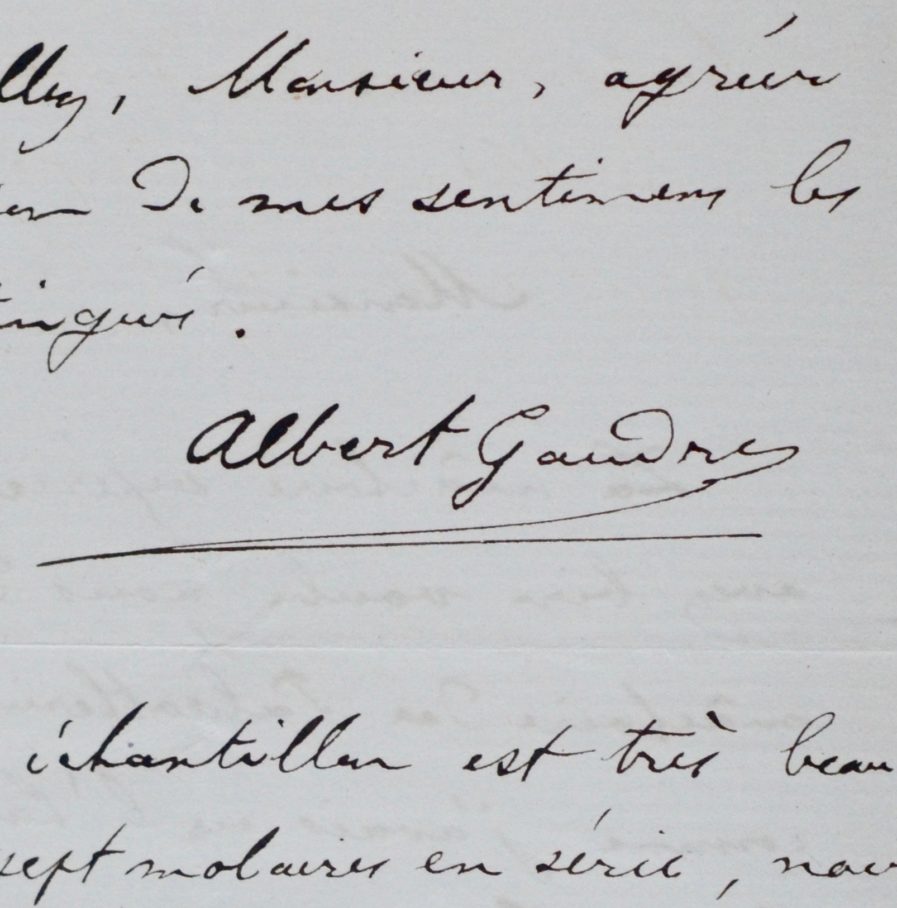 llez, Monsieur, agréer
ion de mes sentimens les
tingués.
Albert Gaudry
échantillon est très beau
sept molaires en série, nou